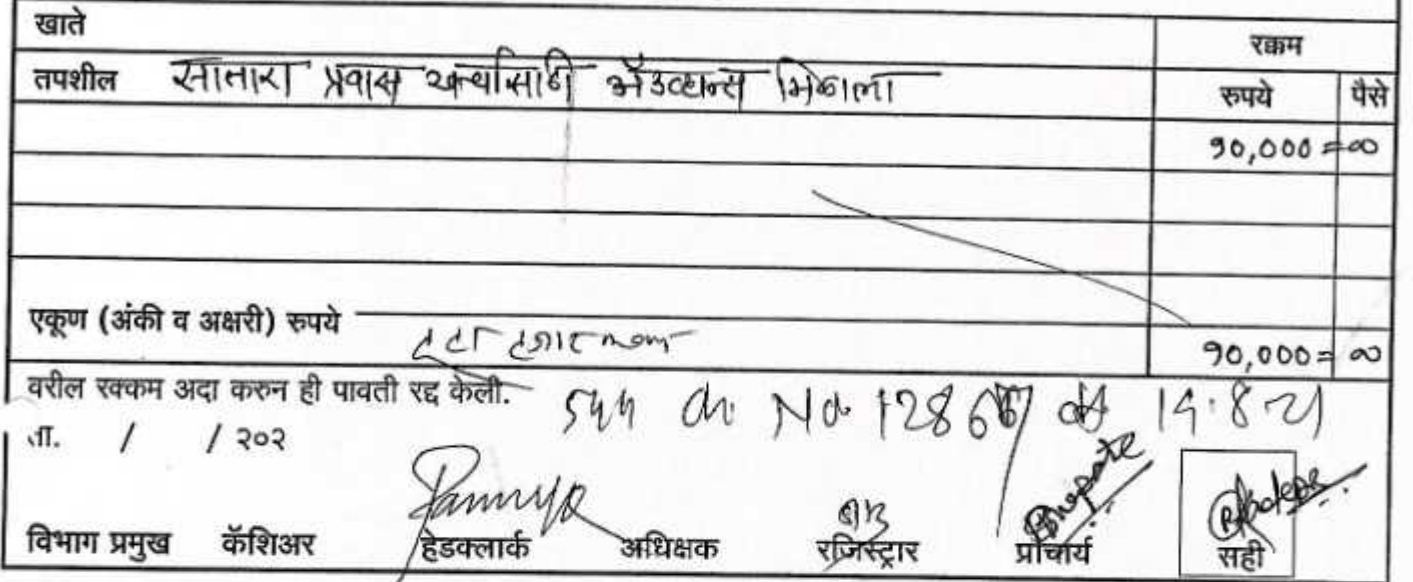 खाते रक्कम
तपशील सातारा प्रवास खर्चासाठी ॲडव्हान्स मिळाला रुपये पैसे
१०,०००=००
एकूण (अंकी व अक्षरी) रुपये
दहा हजार १०,०००=००
वरील रक्कम अदा करुन ही पावती रद्द केली.
No. 12867
ता. / / २०२
विभाग प्रमुख कॅशिअर हेडक्लार्क अधिक्षक रजिस्ट्रार प्राचार्य सही